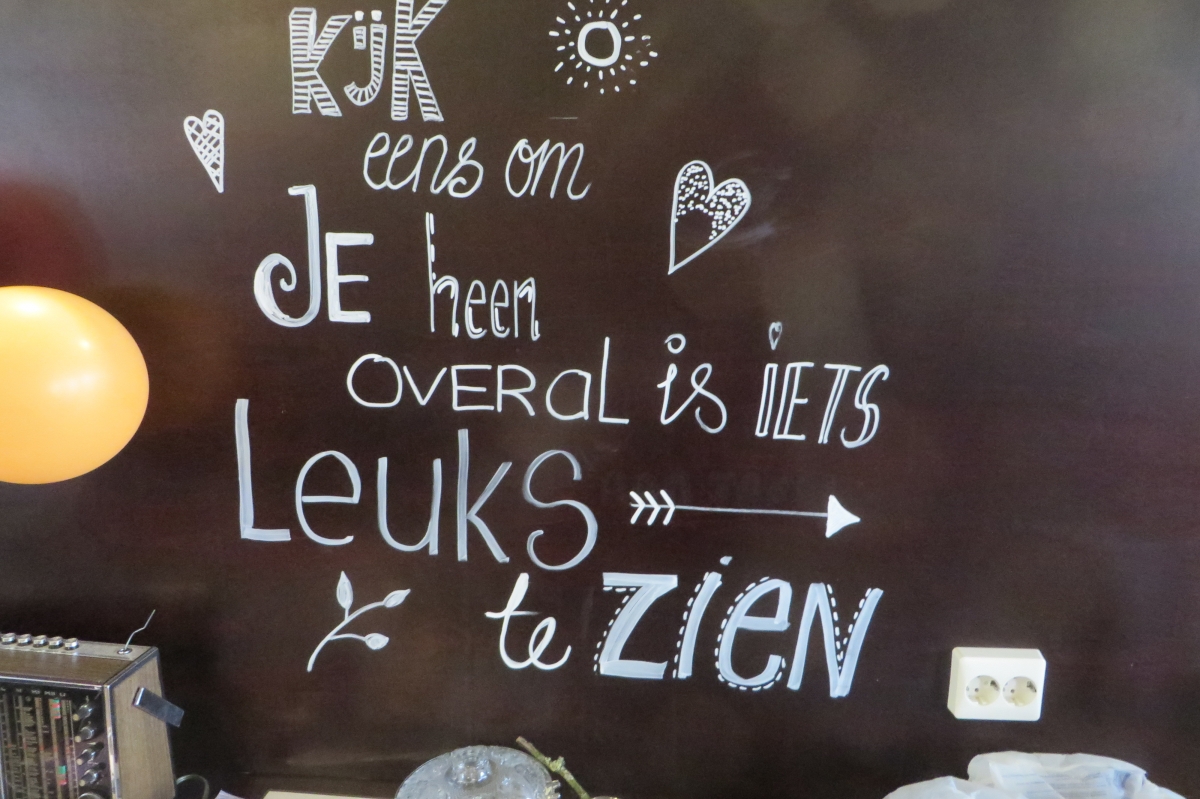 KijK
eens om
JE heen
OVERaL is iETS
LeukS
te ZieN